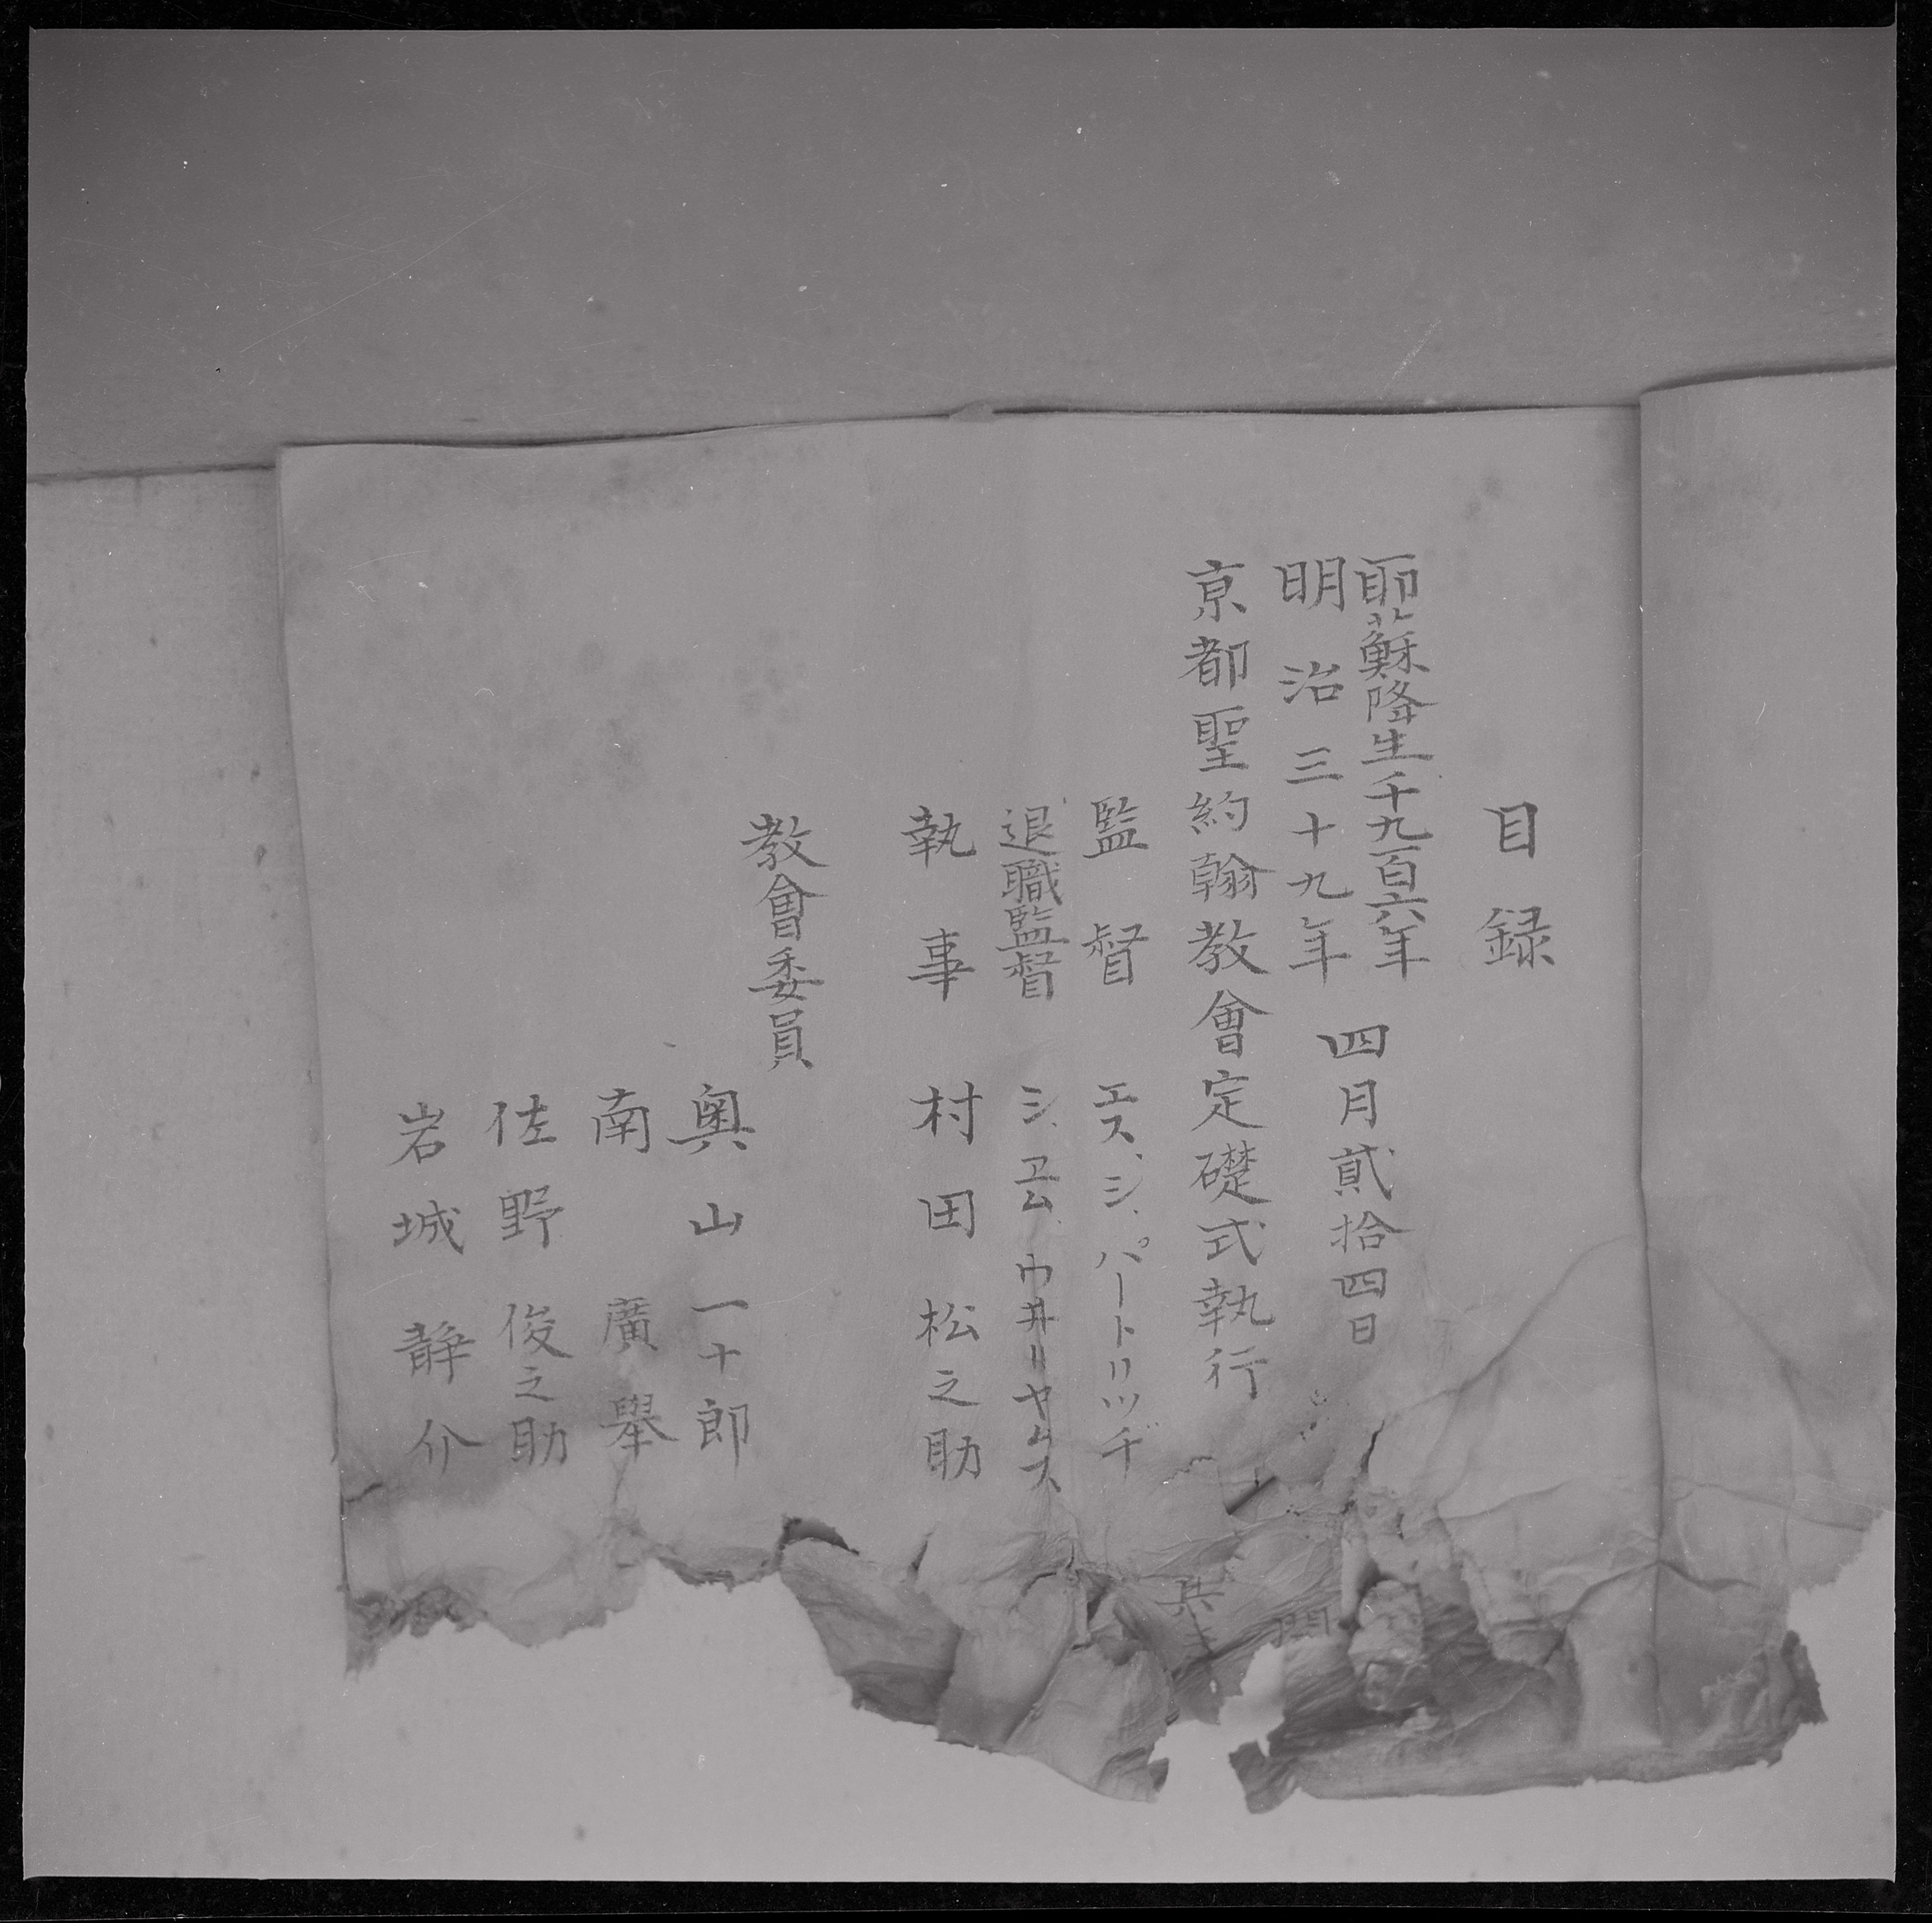 目録
耶蘇降生千九百六年
明治三十九年
四月貳拾四日
京都聖約翰教會定礎式執行
監督 エス、シ、パートリツヂ
退職監督 シ、エム、ウ井リヤムス
執事 村田松之助
教會委員
奥山一十郎
南廣舉
佐野俊之助
岩城静介